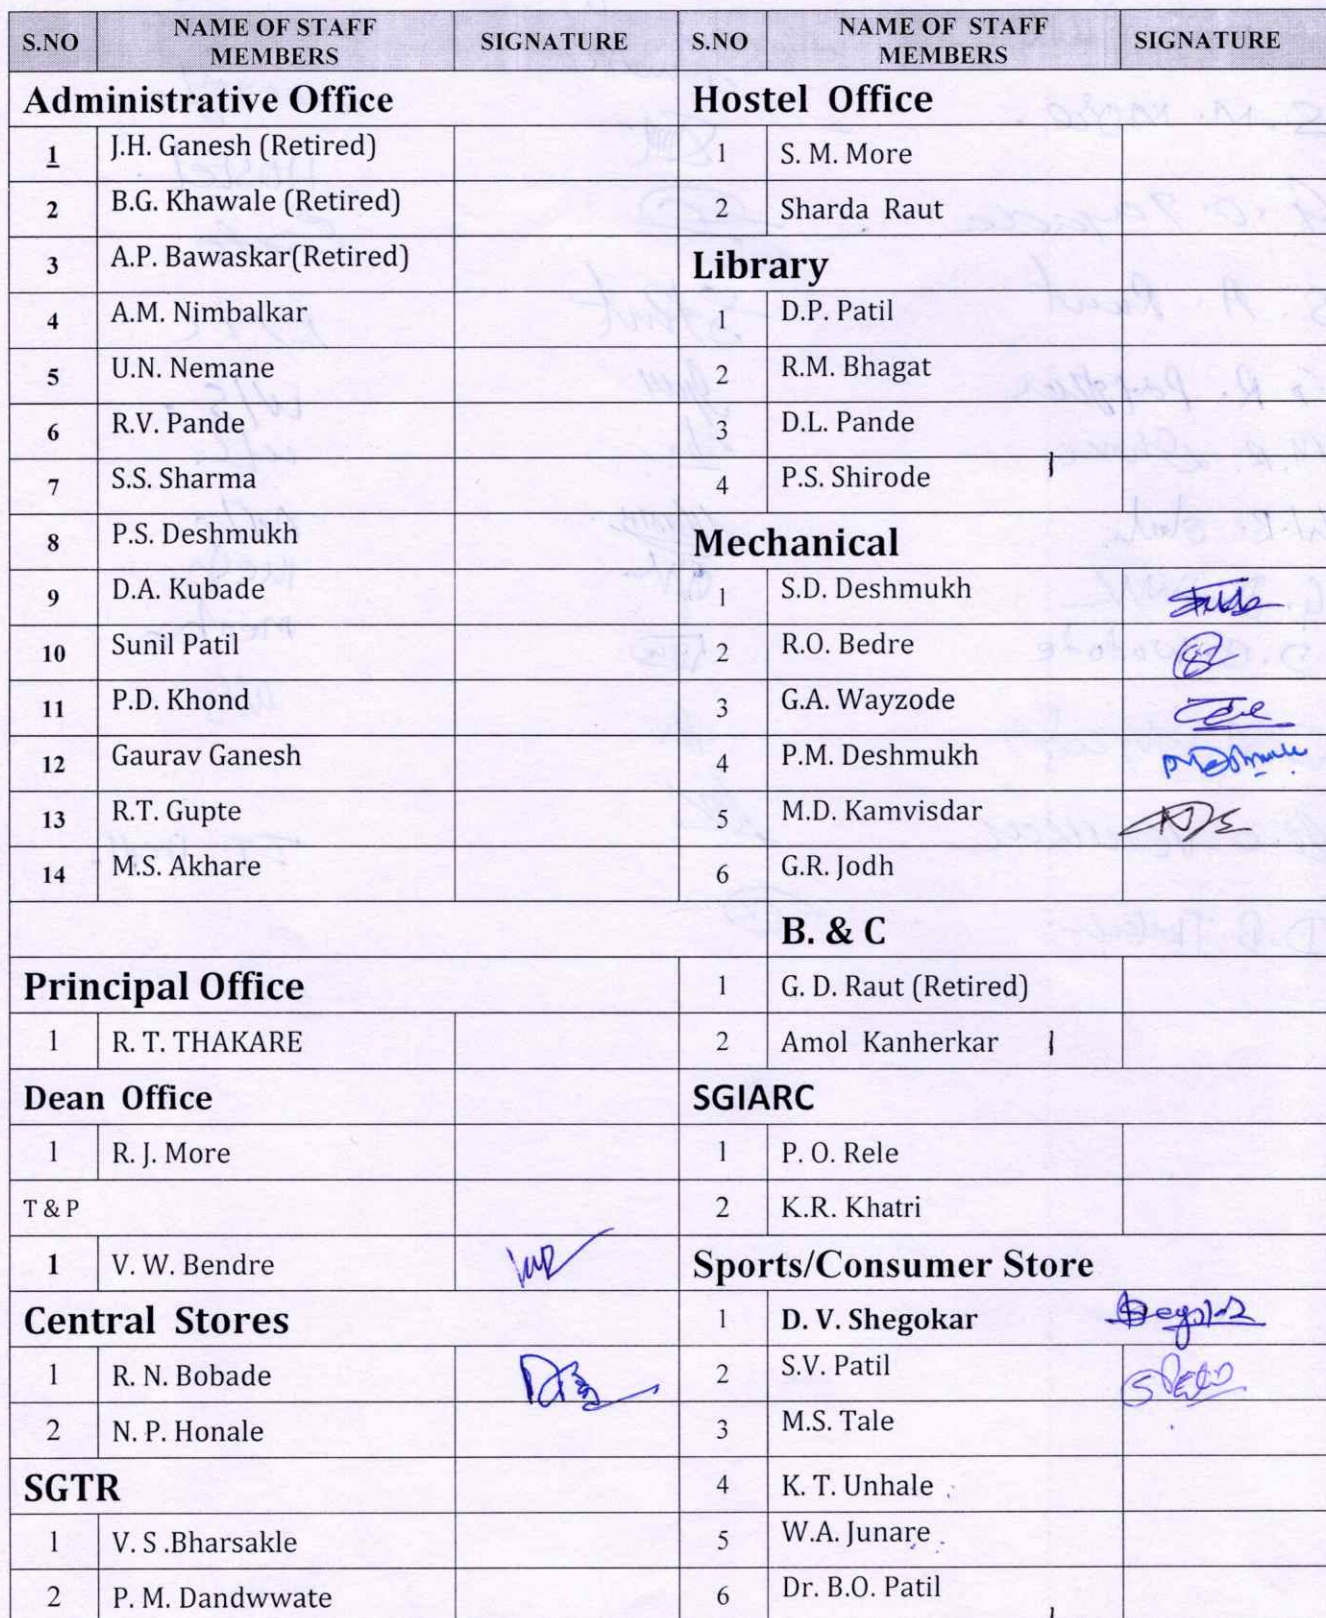 S.NO NAME OF STAFF MEMBERS SIGNATURE
Administrative Office
1 J.H. Ganesh (Retired)
2 B.G. Khawale (Retired)
3 A.P. Bawaskar(Retired)
4 A.M. Nimbalkar
5 U.N. Nemane
6 R.V. Pande
7 S.S. Sharma
8 P.S. Deshmukh
9 D.A. Kubade
10 Sunil Patil
11 P.D. Khond
12 Gaurav Ganesh
13 R.T. Gupte
14 M.S. Akhare
Principal Office
1 R. T. THAKARE
Dean Office
1 R. J. More
T & P
1 V. W. Bendre
Central Stores
1 R. N. Bobade
2 N. P. Honale
SGTR
1 V. S .Bharsakle
2 P. M. Dandwwate
S.NO NAME OF STAFF MEMBERS SIGNATURE
Hostel Office
1 S. M. More
2 Sharda Raut
Library
1 D.P. Patil
2 R.M. Bhagat
3 D.L. Pande
4 P.S. Shirode
Mechanical
1 S.D. Deshmukh
2 R.O. Bedre
3 G.A. Wayzode
4 P.M. Deshmukh PMDeshmukh
5 M.D. Kamvisdar
6 G.R. Jodh
B. & C
1 G. D. Raut (Retired)
2 Amol Kanherkar
SGIARC
1 P. O. Rele
2 K.R. Khatri
Sports/Consumer Store
1 D. V. Shegokar
2 S.V. Patil
3 M.S. Tale
4 K. T. Unhale
5 W.A. Junare
6 Dr. B.O. Patil